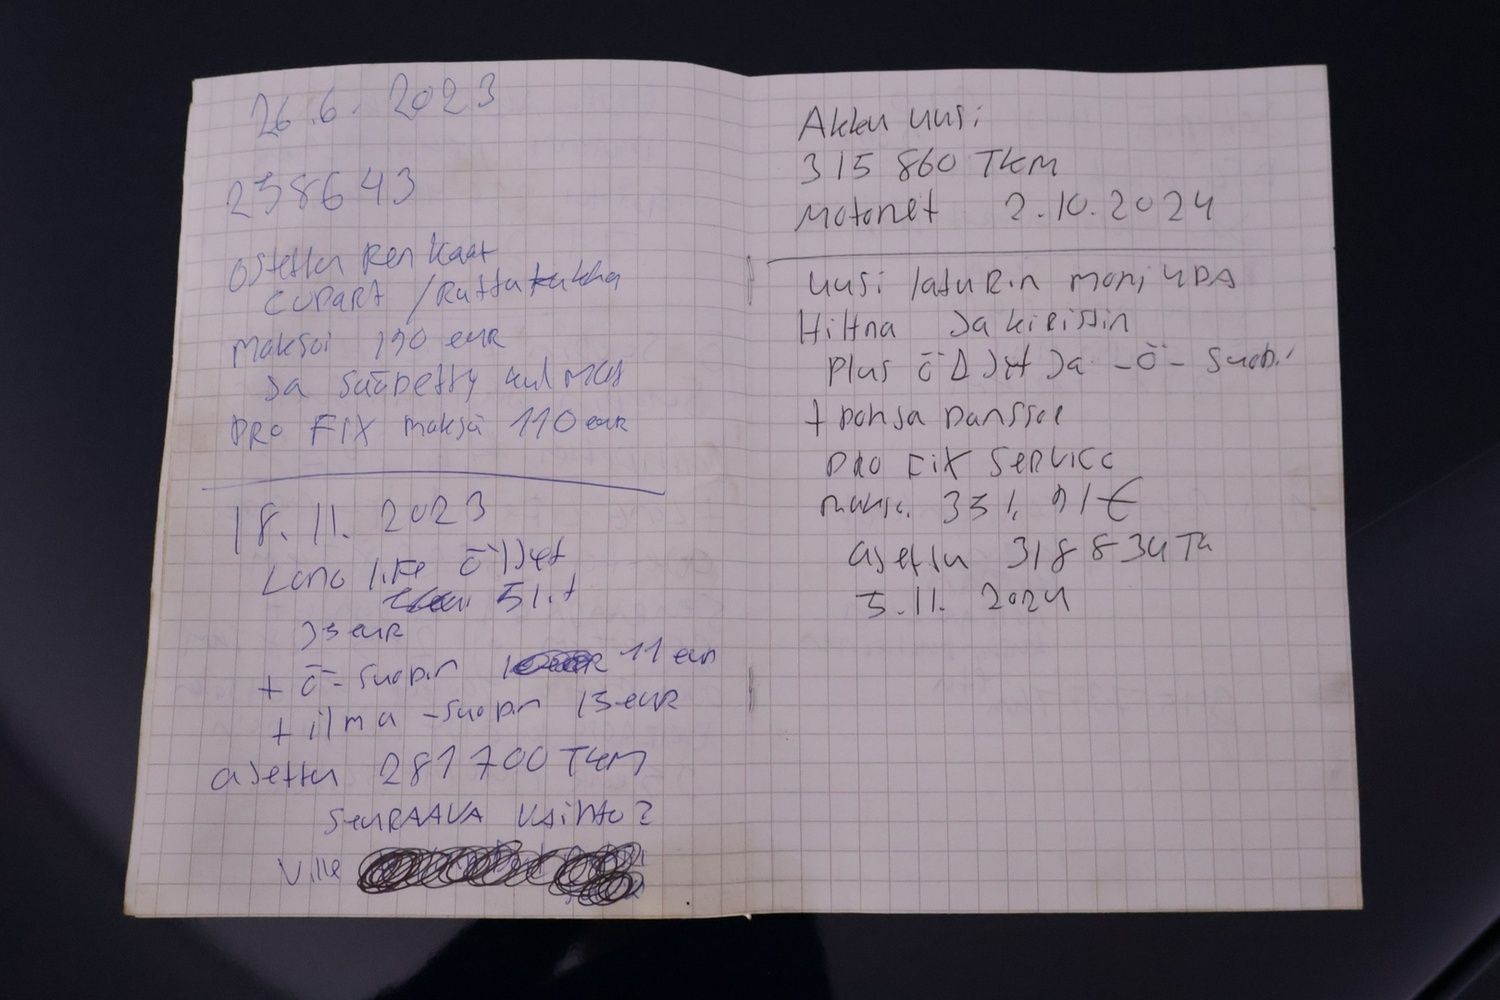 26.6.2023
258643
OSTETTU RENKAAT
CUPART /RUTTUTUKKA
MAKSOI 190 eUR
JA SÄÄDETTY KULMAT
PRO FIX MAKSOI 110 eUR
18.11.2023
LONG LIFE ÖLJYT
5 Lit
35 eUR
+ Ö-SUODIN 11 eUR
+ ILMA-SUODIN 15 eUR
AJETTU 281700 TKM
SEURAAVA VAIHTO?
Ville
AKKU UUSI
315 860 TKM
MOTONET 2.10.2024
UUSI LATURIN MONIURA
HIHNA JA KIRISTIN
PLUS ÖLJYT JA -Ö- SUOD.
+ POHJA PANSSOL
PRO FIX SERVICE
MAKSOI 351,91€
AJETTU 318834 TK
5.11.2024